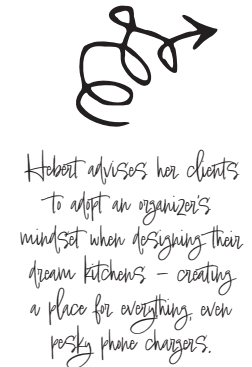 Hebert advises her clients
to adopt an organizer's
mindset when designing their
dream kitchens – creating
a place for everything, even
pesky phone chargers.